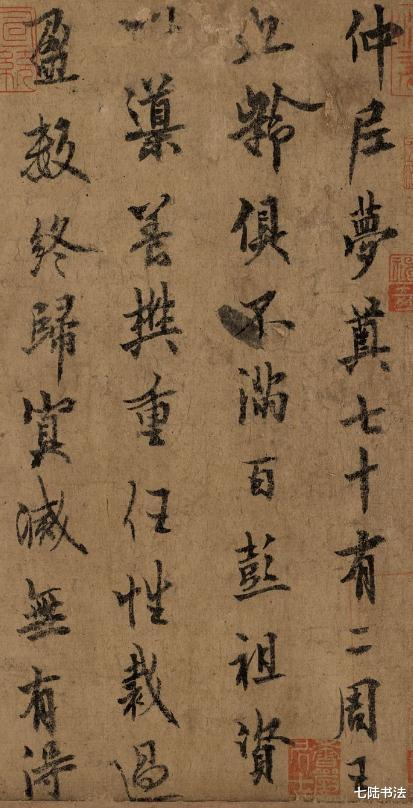 仲尼夢奠七十有二周王
九齡俱不滿百彭祖資
以導養樊重任性裁過
盈數終歸冥滅無有得
七陆书法